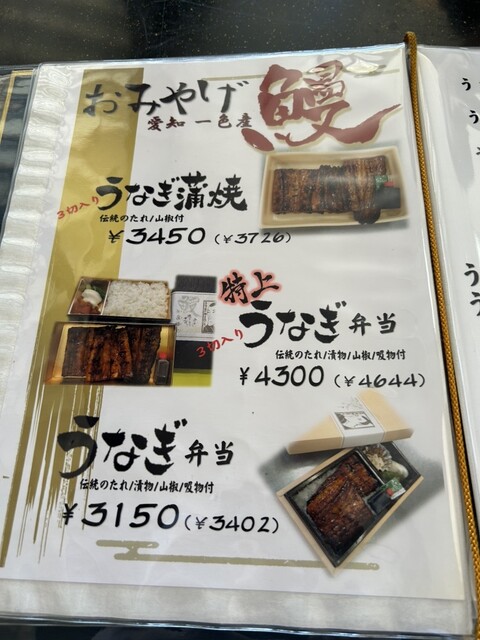 おみやげ 鰻
愛知 一色産
3切入り うなぎ蒲焼
伝統のたれ/山椒付
¥3450 (¥3726)
特上
3切入り うなぎ 弁当
伝統のたれ/漬物/山椒/吸物付
¥4300 (¥4644)
うなぎ 弁当
伝統のたれ/漬物/山椒/吸物付
¥3150 (¥3402)
う
う
う
う